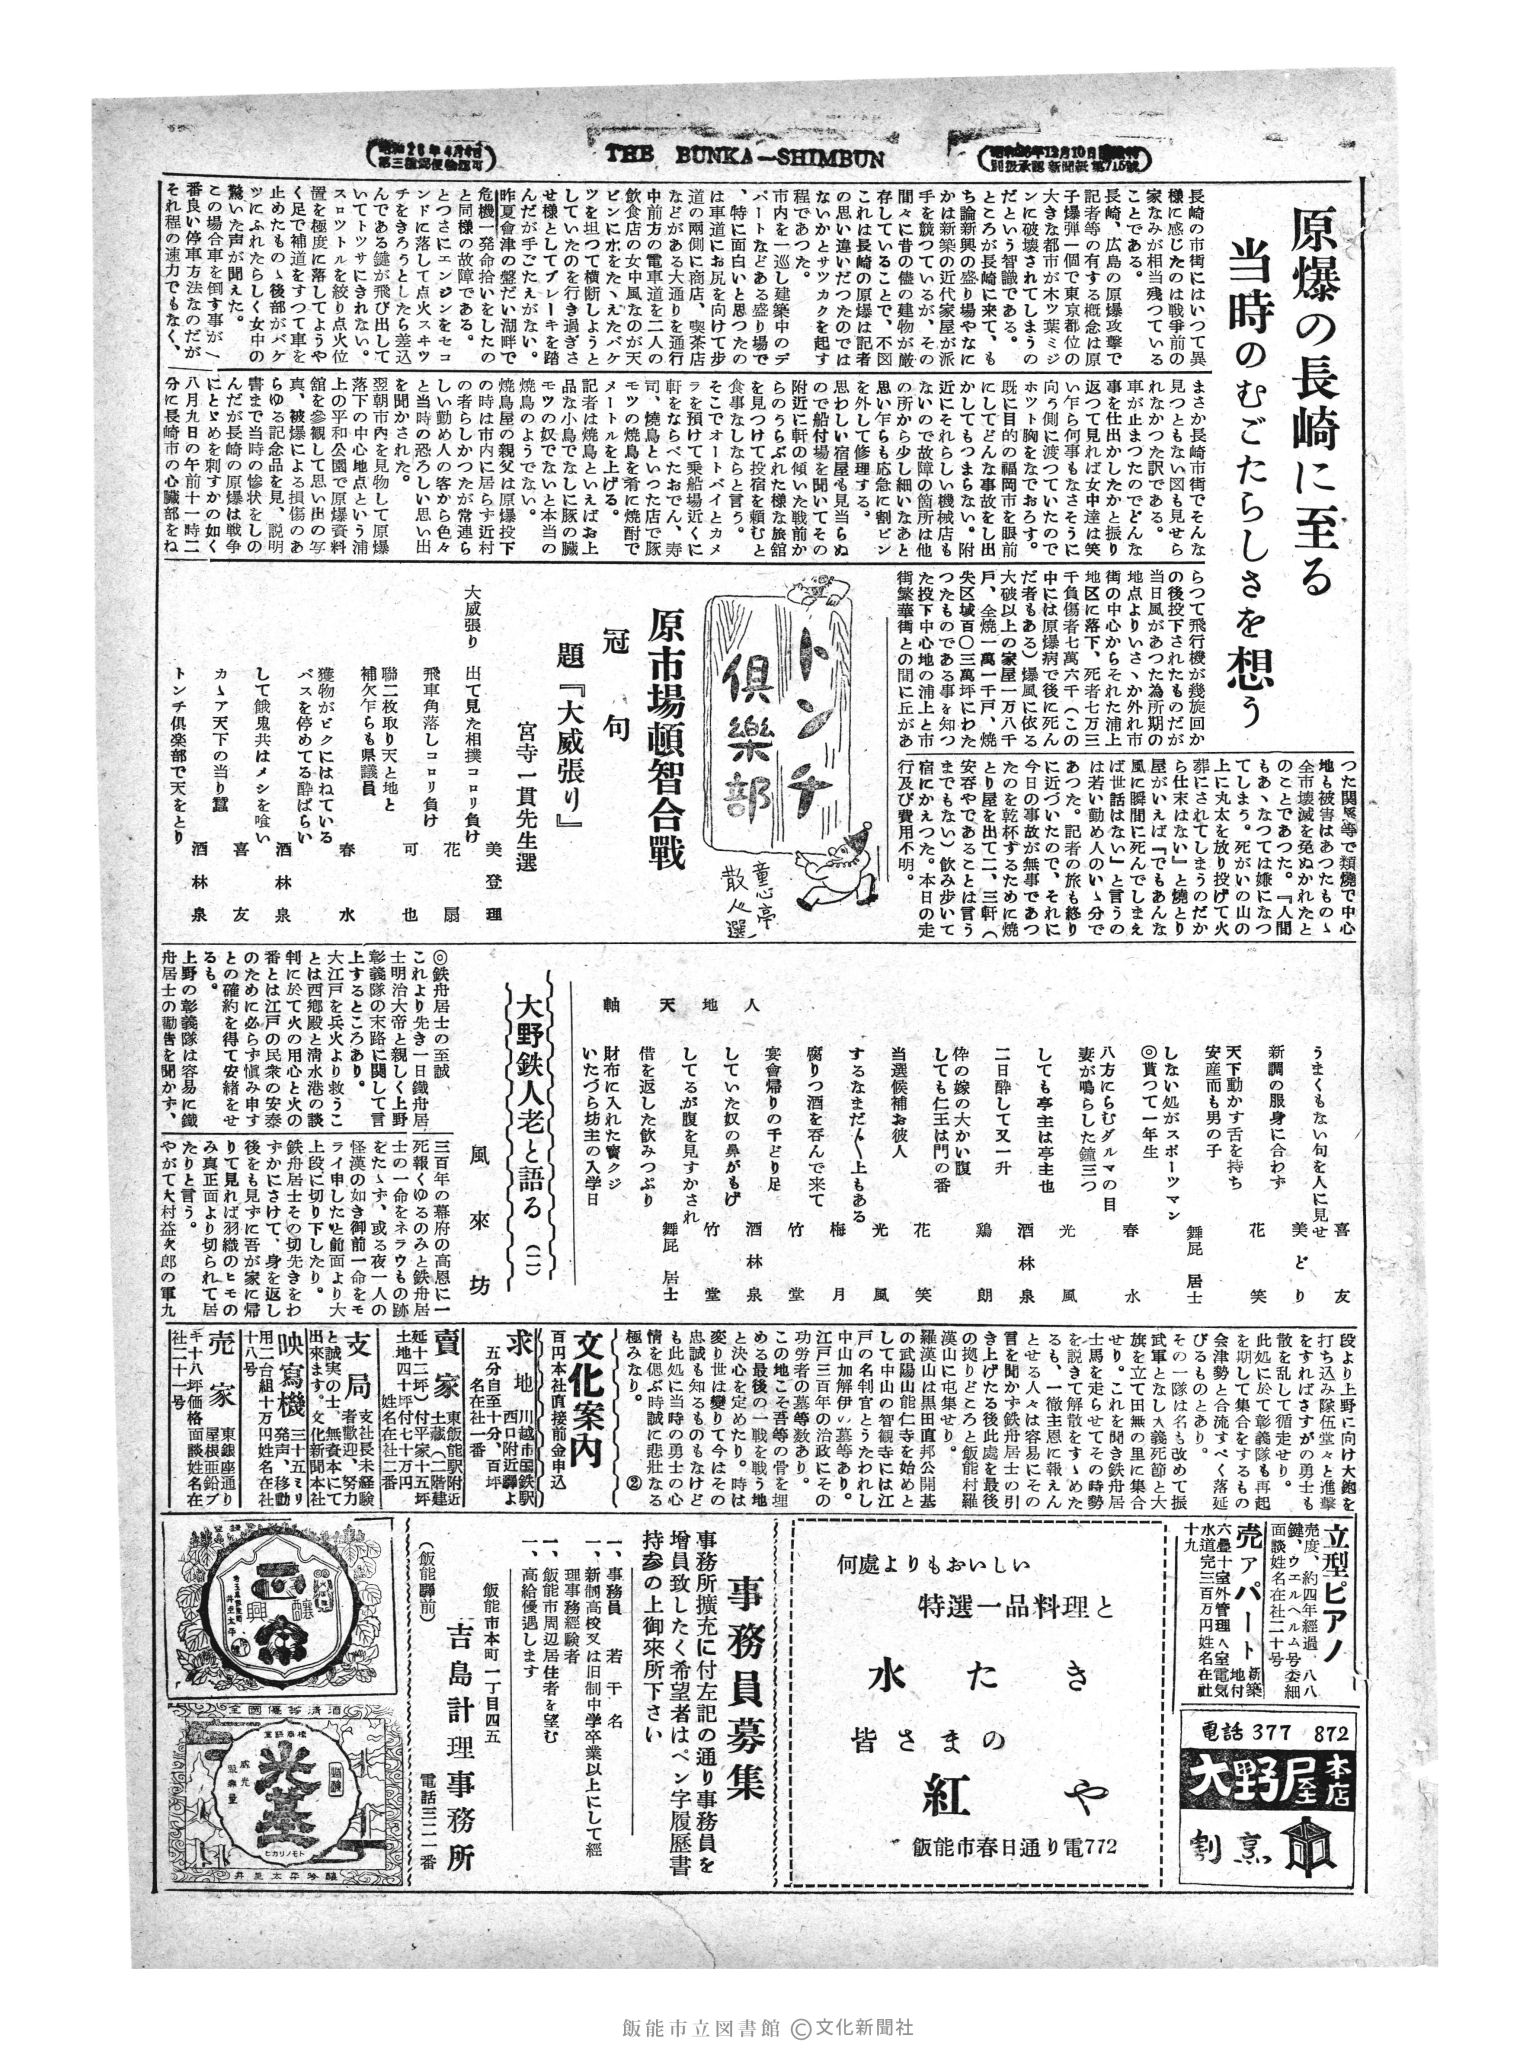 THE BUNKA—SHIMBUN
原爆の長崎に至る
当時のむごたらしさを想う
長崎の市街にはいつて異
様に感じたのは戦争前の
家なみが相当残つている
ことである。
長崎、広島の原爆攻撃で
記者等の有する概念は原
子爆弾一個で東京都位の
大きな都市が木ッ葉ミジ
ンに破壊されてしまうの
だという智識である。
ところが長崎に来て、も
ち論新興の盛り場やなに
かは新築の近代家屋が派
手を競つているが、その
間々に昔の儘の建物が厳
存していることで、不図
これは長崎の原爆は記者
の思い違いだつたのでは
ないかとサツカクを起す
程であつた。
市内を一巡し建築中のデ
パートなどある盛り場で
、特に面白いと思つたの
は車道にお尻を向けて歩
道の両側に商店、喫茶店
などがある大通りを通行
中前方の電車道を二人の
飲食店の女中風なのが天
ビンに水をたゝえたバケ
ツを坦つて横断しようと
していたのを行き過ぎさ
せ様としてブレーキを踏
んだが手ごたえがない。
昨夏會津の磐だい湖畔で
危機一発命拾いをしたの
と同様の故障である。
とつさにエンジンをセコ
ンドに落して点火スキツ
チをきろうとしたら差込
んである鍵が飛び出して
いてトツサにきれない。
スロツトルを絞り点火位
置を極度に落してようや
く足で補道をすつて車を
止めたものゝ後部がバケ
ツにふれたらしく女中の
驚いた声が聞えた。
この場合車を倒す事が一
番良い停車方法なのだが
それ程の速力でもなく、
まさか長崎市街でそんな
見つともない図も見せら
れなかつた訳である。
車が止まつたのでどんな
事を仕出かしたかと振り
返つて見れば女中達は笑
い乍ら何事もなさそうに
向う側に渡つていたので
ホツト胸をなでおろす。
既に目的の福岡市を眼前
にしてどんな事故をし出
かしてもつまらない。附
近にそれらしい機械店も
ないので故障の箇所は他
の所から少し細いなあと
思い乍らも応急に割ピン
を外して修理する。
思わしい宿屋も見当らぬ
ので船付場を聞いてその
附近に軒の傾いた戦前か
らのうらぶれた様な旅館
を見つけて投宿を頼むと
食事なしならと言う。
そこでオートバイとカメ
ラを預けて乗船場近くに
軒をならべたおでん、寿
司、焼鳥といつた店で豚
モツの焼鳥を肴に焼酎で
メートルを上げる。
記者は焼鳥といえばお上
品な小鳥でなしに豚の臓
モツの奴でないと本当の
焼鳥のようでない。
焼鳥屋の親父は原爆投下
の時は市内に居らず近村
の者らしかつたが常連ら
しい勤め人の客から色々
と当時の恐ろしい思い出
を聞かされた。
翌朝市内を見物して原爆
落下の中心地点という浦
上の平和公園で原爆資料
館を参観して思い出の写
真、被爆による損傷のあ
らゆる記念品を見、説明
書まで当時の惨状をしの
んだが長崎の原爆は戦争
にとゞめを刺すかの如く
八月九日の午前十一時二
分に長崎市の心臓部をね
らつて飛行機が幾旋回か
の後投下されたものだが
当日風があつた為所期の
地点よりいさゝか外れ市
街の中心からそれた浦上
地区に落下、死者七万三
千負傷者七萬六千（この
中には原爆病で後に死ん
だ者もある）爆風に依る
大破以上の家屋一万八千
戸、全焼一萬一千戸、焼
失区域百〇三萬坪にわた
つたものである事を知つ
た投下中心地の浦上と市
街繁華街との間に丘があ
つた関係等で類焼で中心
地も被害はあつたものゝ
全市壊滅を免ぬかれたと
のことであつた。『人間
もあゝなつては嫌になつ
てしまう。死がいの山の
上に丸太を放り投げて火
葬にされてしまうのだか
ら仕末はない』と焼とり
屋がいえば『でもあんな
風に瞬間に死んでしまえ
ば世話はない』と言うの
は若い勤め人のいゝ分で
あつた。記者の旅も終り
に近づいたので、それに
今日の事故が無事であつ
たのを乾杯するために焼
とり屋を出て二、三軒（
安呑やであることは言う
までもない）飲み歩いて
宿にかえつた。本日の走
行及び費用不明。
トンチ
倶樂部
童心亭
散人選
原市場頓智合戰
冠句
題『大威張り』
宮寺一貫先生選
大威張り 出て見た相撲コロリ負け 美登理
飛車角落しコロリ負け 花扇
聯二枚取り天と地と
補欠乍らも県議員 可也
獲物がビクにはねている
バスを停めてる酔ばらい 春水
して餓鬼共はメシを喰い 酒林泉
カヽア天下の当り蠶 喜友
トンチ倶楽部で天をとり 酒林泉
うまくもない句を人に見せ 喜友
美どり
新調の服身に合わず 花笑
天下動かす舌を持ち
安産而も男の子
しない処がスポーツマン 舞屁居士
◎貰つて一年生
八方にらむダルマの目 春水
妻が鳴らした鐘三つ 光風
しても亭主は亭主也 酒林泉
二日酔して又一升 鶏朗
伜の嫁の大かい腹 花笑
しても仁王は門の番
当選候補お彼人 光風
するなまだ〳〵上もある 梅月
腐りつ酒を呑んで来て 竹堂
人 宴會帰りの千どり足 酒林泉
地 していた奴の鼻がもげ 竹堂
天 してるが腹を見すかされ 舞屁居士
軸 借を返した飲みつぷり
財布に入れた寳クジ
いたづら坊主の入学日
大野鉄人老と語る（二）
風來坊
◎鉄舟居士の至誠
これより先き一日鐵舟居
士明治大帝と親しく上野
彰義隊の末路に関して言
上するところあり。
大江戸を兵火より救うこ
とは西郷殿と清水港の談
判に於て火の用心と火の
番とは江戸の民衆の安泰
のために必らず愼み申す
との確約を得て安緒をせ
るも。
上野の彰義隊は容易に鐵
舟居士の勸告を聞かず、
三百年の幕府の高恩に一
死報くゆるのみと鉄舟居
士の一命をネラウもの跡
をたゝず、或る夜一人の
怪漢の如き御前一命をモ
ライ申したいと前面より大
上段に切り下したり。
鉄舟居士その切先きをわ
ずかにさけて、身を返し
後をも見ずに吾が家に帰
りて見れば羽織のヒモの
み真正面より切られて居
たりと言う。
やがて大村益次郎の軍九
段より上野に向け大砲を
打ち込み隊伍堂々と進撃
をすればさすがの勇士も
散を乱して循走せり。
此処に於て彰義隊も再起
を期して集合をするもの
会津勢と合流すべく落延
びるものとあり。
その一隊は名も改めて振
武軍となし大義死節と大
旗を立て田無の里に集合
せり。これを聞き鉄舟居
士馬を走らせてその時勢
を説きて解散をすゝめた
るも、一徹主恩に報えん
とせる人々は容易にその
言を聞かず鉄舟居士の引
き上げたる後此處を最後
の拠りどころと飯能村羅
漢山に屯集せり。
羅漢山は黒田直邦公開基
の武陽山能仁寺を始めと
して中山の智観寺には江
戸の名判官とうたわれし
中山加解伊の墓等あり。
江戸三百年の治政にその
功労者の墓等数あり。
この地こそ吾等の骨を埋
める最後の一戦を戦う地
と決心を定めたり。時は
変り世は變りて今はその
忠誠も知るものもなけど
も此処に当時の勇士の心
情を偲ぶ時誠に悲壮なる
極みなり。②
文化案内
百円本社直接前金申込
求地 川越市国鉄駅
西口附近驛よ
五分自至十分、百坪
名在社一番
賣家 東飯能駅附近
土蔵（二階建
延十二坪）付平家十五坪
土地四十坪付七十万円
姓名在社二番
支局 支社長未経験
者歡迎、努力
と誠実の士、無資本にて
出来ます。文化新聞本社
映寫機 三十五ミリ
発声、移動
用二台組十万円姓名在社
十八号
売家 東銀座通り
屋根亜鉛ブ
キ十八坪価格面談姓名在
社二十一号
立型ピアノ
売度、約四年経過、八八
鍵、ウエルヘルム号委細
面談姓名在社二十号
売アパート 新築
地付
六疊十室外管理人室電気
水道完三百万円姓名在社
十九
電話 377 872
大野屋本店
割烹
何處よりもおいしい
特選一品料理と
水たき
皆さまの
紅や
飯能市春日通り電772
事務員募集
事務所擴充に付左記の通り事務員を
增員致したく希望者はペン字履歴書
持参の上御來所下さい
一、事務員 若干名
一、新制高校又は旧制中学卒業以上にして經
理事務経験者
一、飯能市周辺居住者を望む
一、高給優遇します
飯能市本町一丁目四五
吉島計理事務所
（飯能驛前） 電話三二一番
全國優等清酒
ヒカリノモト
飯能市立図書館 ©文化新聞社